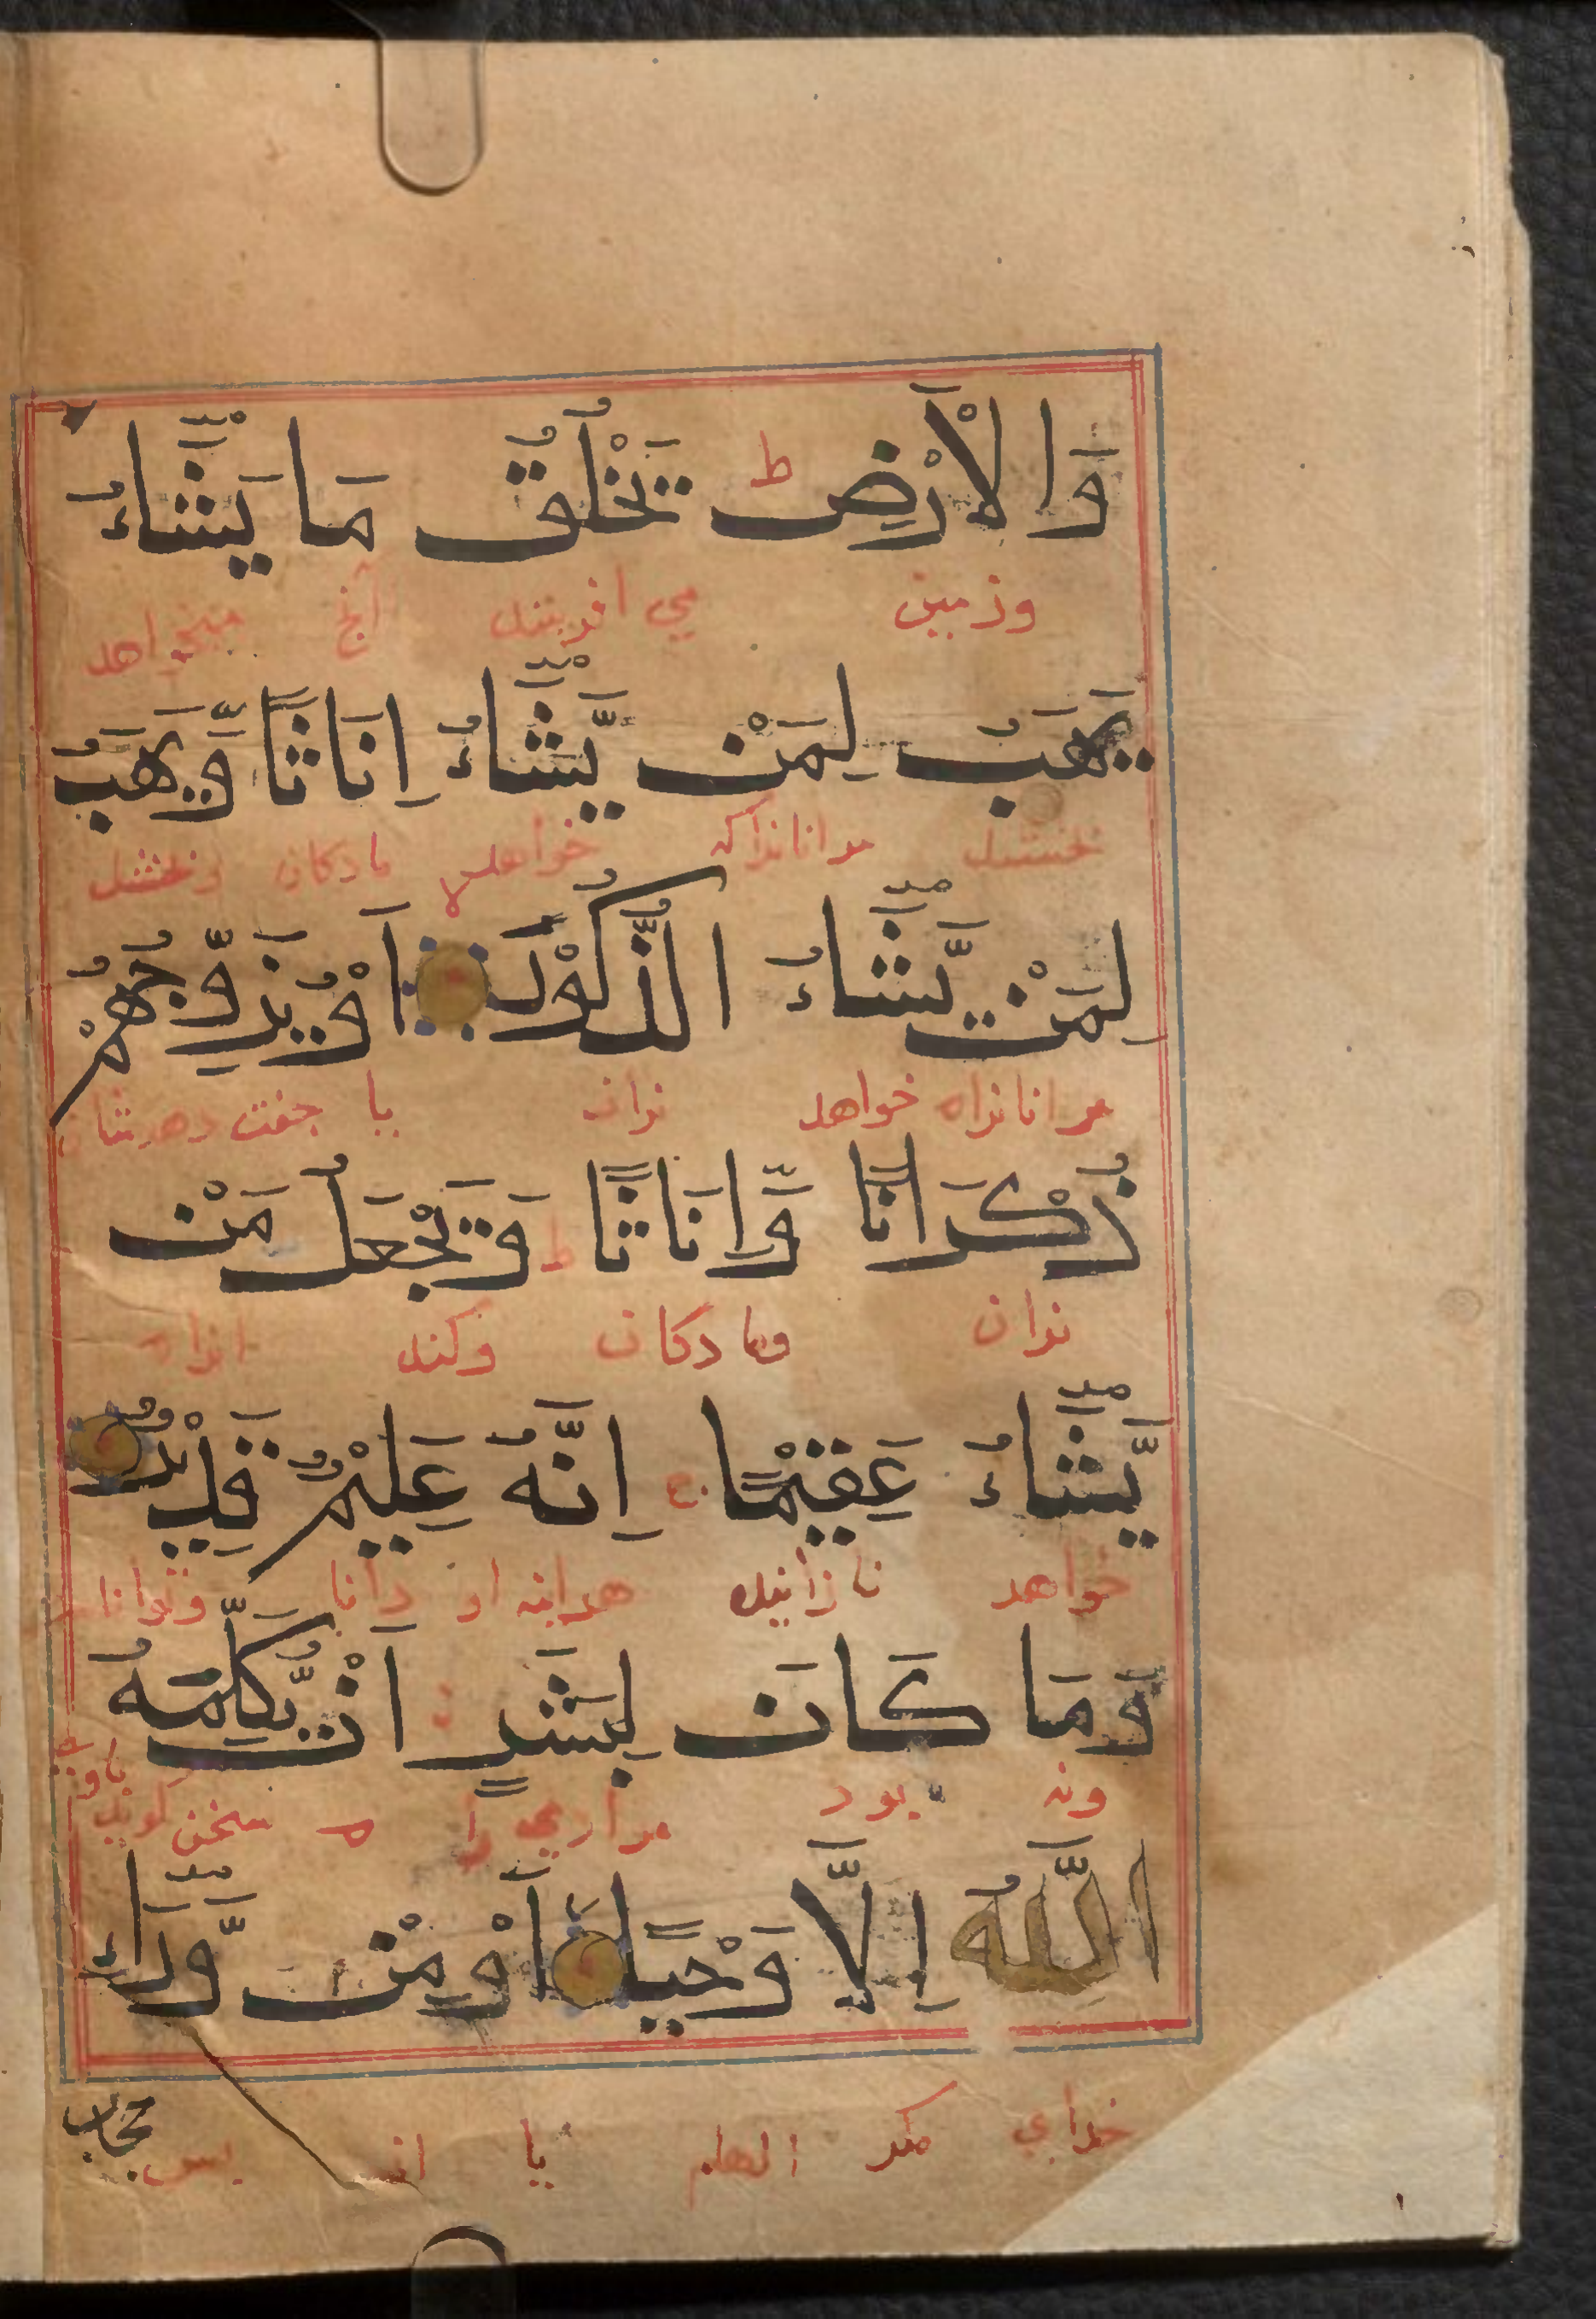 وَالْاَرْضِ ط يَخْلُقُ مَا يَشَاءُ
وزمین می افریند انچ میخواهد
يَهَبُ لِمَنْ يَّشَاءُ اِنَاثًا وَّيَهَبُ
بخشند مرانانراکه خواهد مادکان وبخشد
لِمَنْ يَّشَاءُ الذُّكُوْرَ اَوْ يُزَوِّجُهُمْ
مرانانراه خواهد نران یا جفت دهدشان
ذُكْرَانًا وَّاِنَاثًا ط وَيَجْعَلُ مَنْ
نران ومادکان وکند انراه
يَّشَاءُ عَقِيْمًا ج اِنَّهُ عَلِيْمٌ قَدِيْرٌ
خواهد نازاینده هراینه او دانا وتوانا
وَمَا كَانَ لِبَشَرٍ اَنْ يُّكَلِّمَهُ
ونه بود مرادمی را ه سخن کوید باوی
اللّٰهُ اِلَّا وَحْيًا اَوْ مِنْ وَّرَاءِ
خدای مکر الهام یا از پس
حجاب